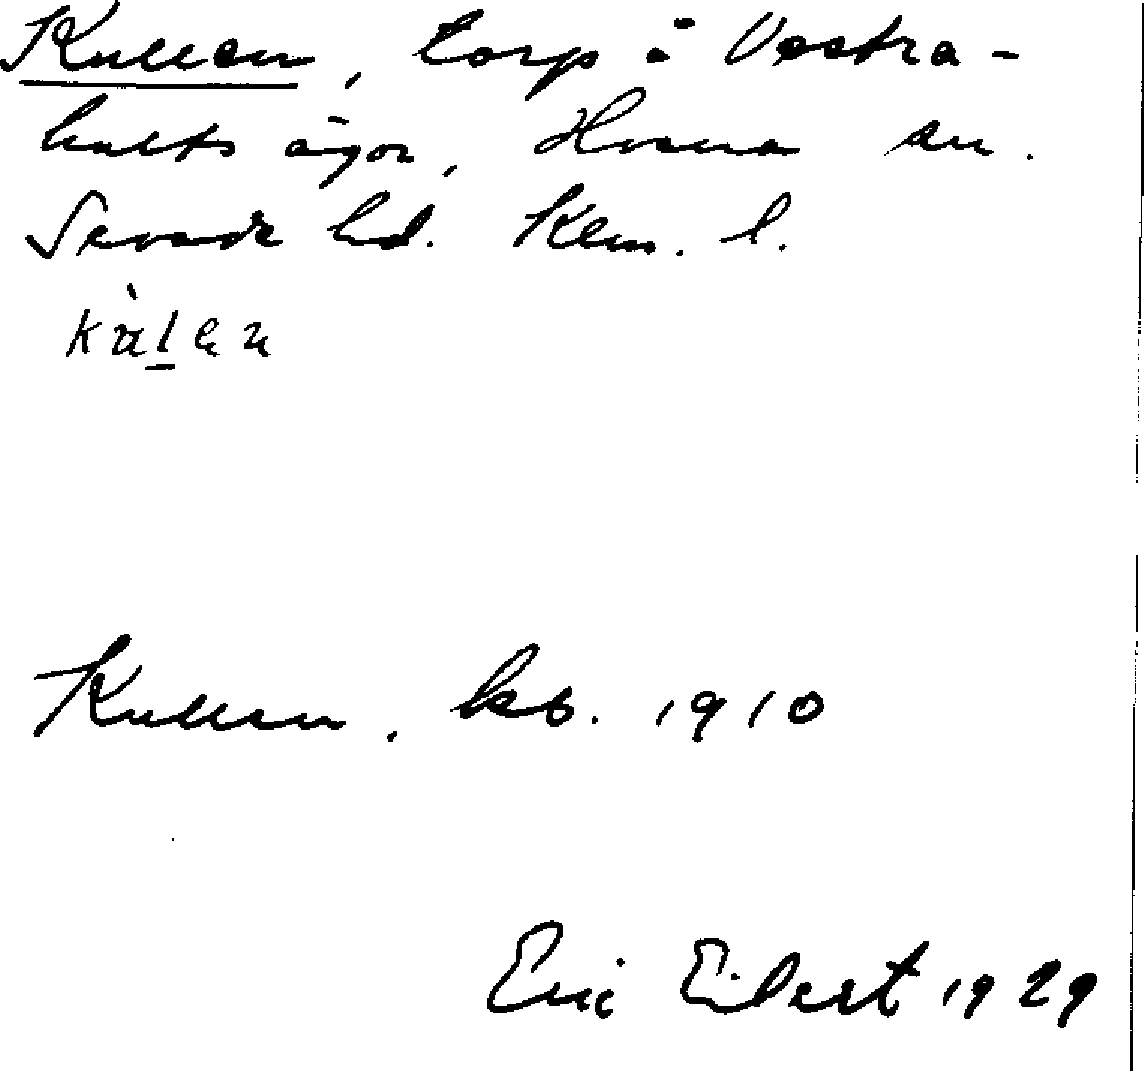 Kullen, torp å Västra-
hults ägor, Hvena sn.
Sevede hd. Klm. l.
kùlen
Kullen, kb. 1910
Eric Eilert 1929